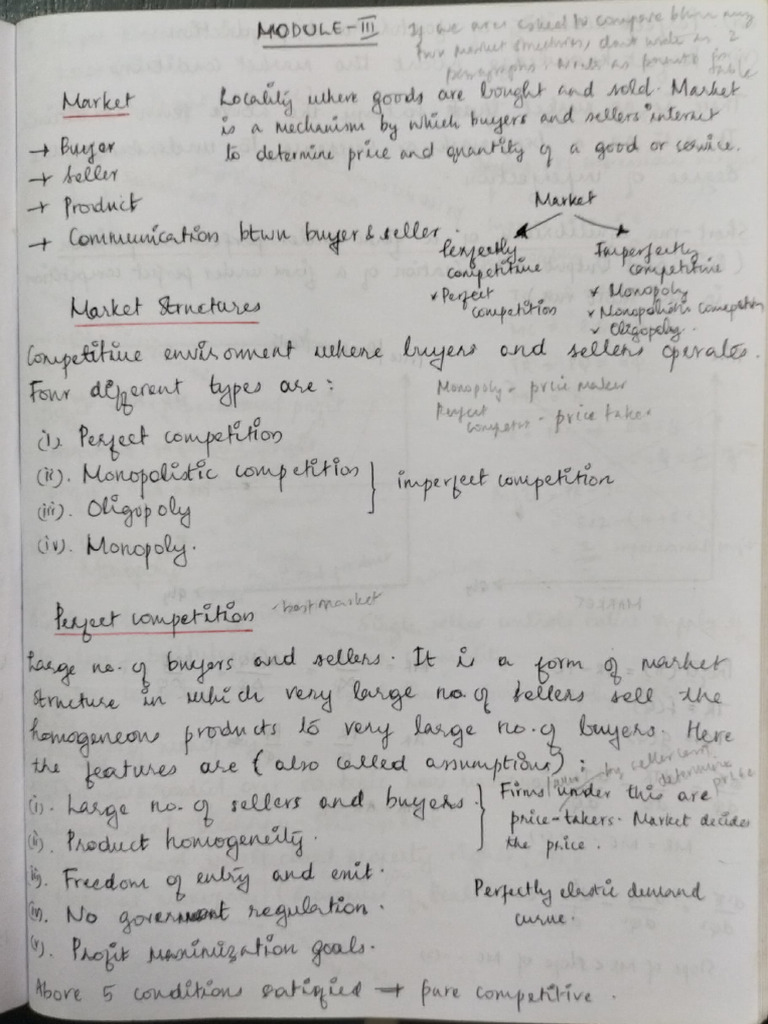 MODULE-III
If we are asked to compare btwn any
four market structures, dont write as 2
paragraphs. Write as points
table
Market
Locality where goods are bought and sold. Market
is a mechanism by which buyers and sellers interact
to determine price and quantity of a good or service.
→ Buyer
→ Seller
→ Product
→ Communication btwn buyer & seller.
Market
Perfectly
competitive
✓ Perfect
competition
Imperfectly
competitive
✓ Monopoly
✓ Monopolistic competition
✓ Oligopoly.
Market Structures
Competitive enviroment where buyers and sellers operates.
Four different types are:
Monopoly - price maker
Perfect
- price taker
(i). Perfect competition
(ii). Monopolistic competition
(iii). Oligopoly
imperfect competition
(iv). Monopoly.
Perfect competition
- best market
Large no. of buyers and sellers. It is a form of market
structure in which very large no. of sellers sell the
homogeneous products to very large no. of buyers. Here
the features are (also called assumptions):
(i). Large no. of sellers and buyers.
(ii). Product homogeneity.
by seller cant
determine
price
Firms under this are
price-takers. Market decides
the price.
(iii). Freedom of entry and exit.
(iv). No government regulation.
(v). Profit maximization goals.
Perfectly elastic demand
curve.
Above 5 conditions satisfied → pure competitive.